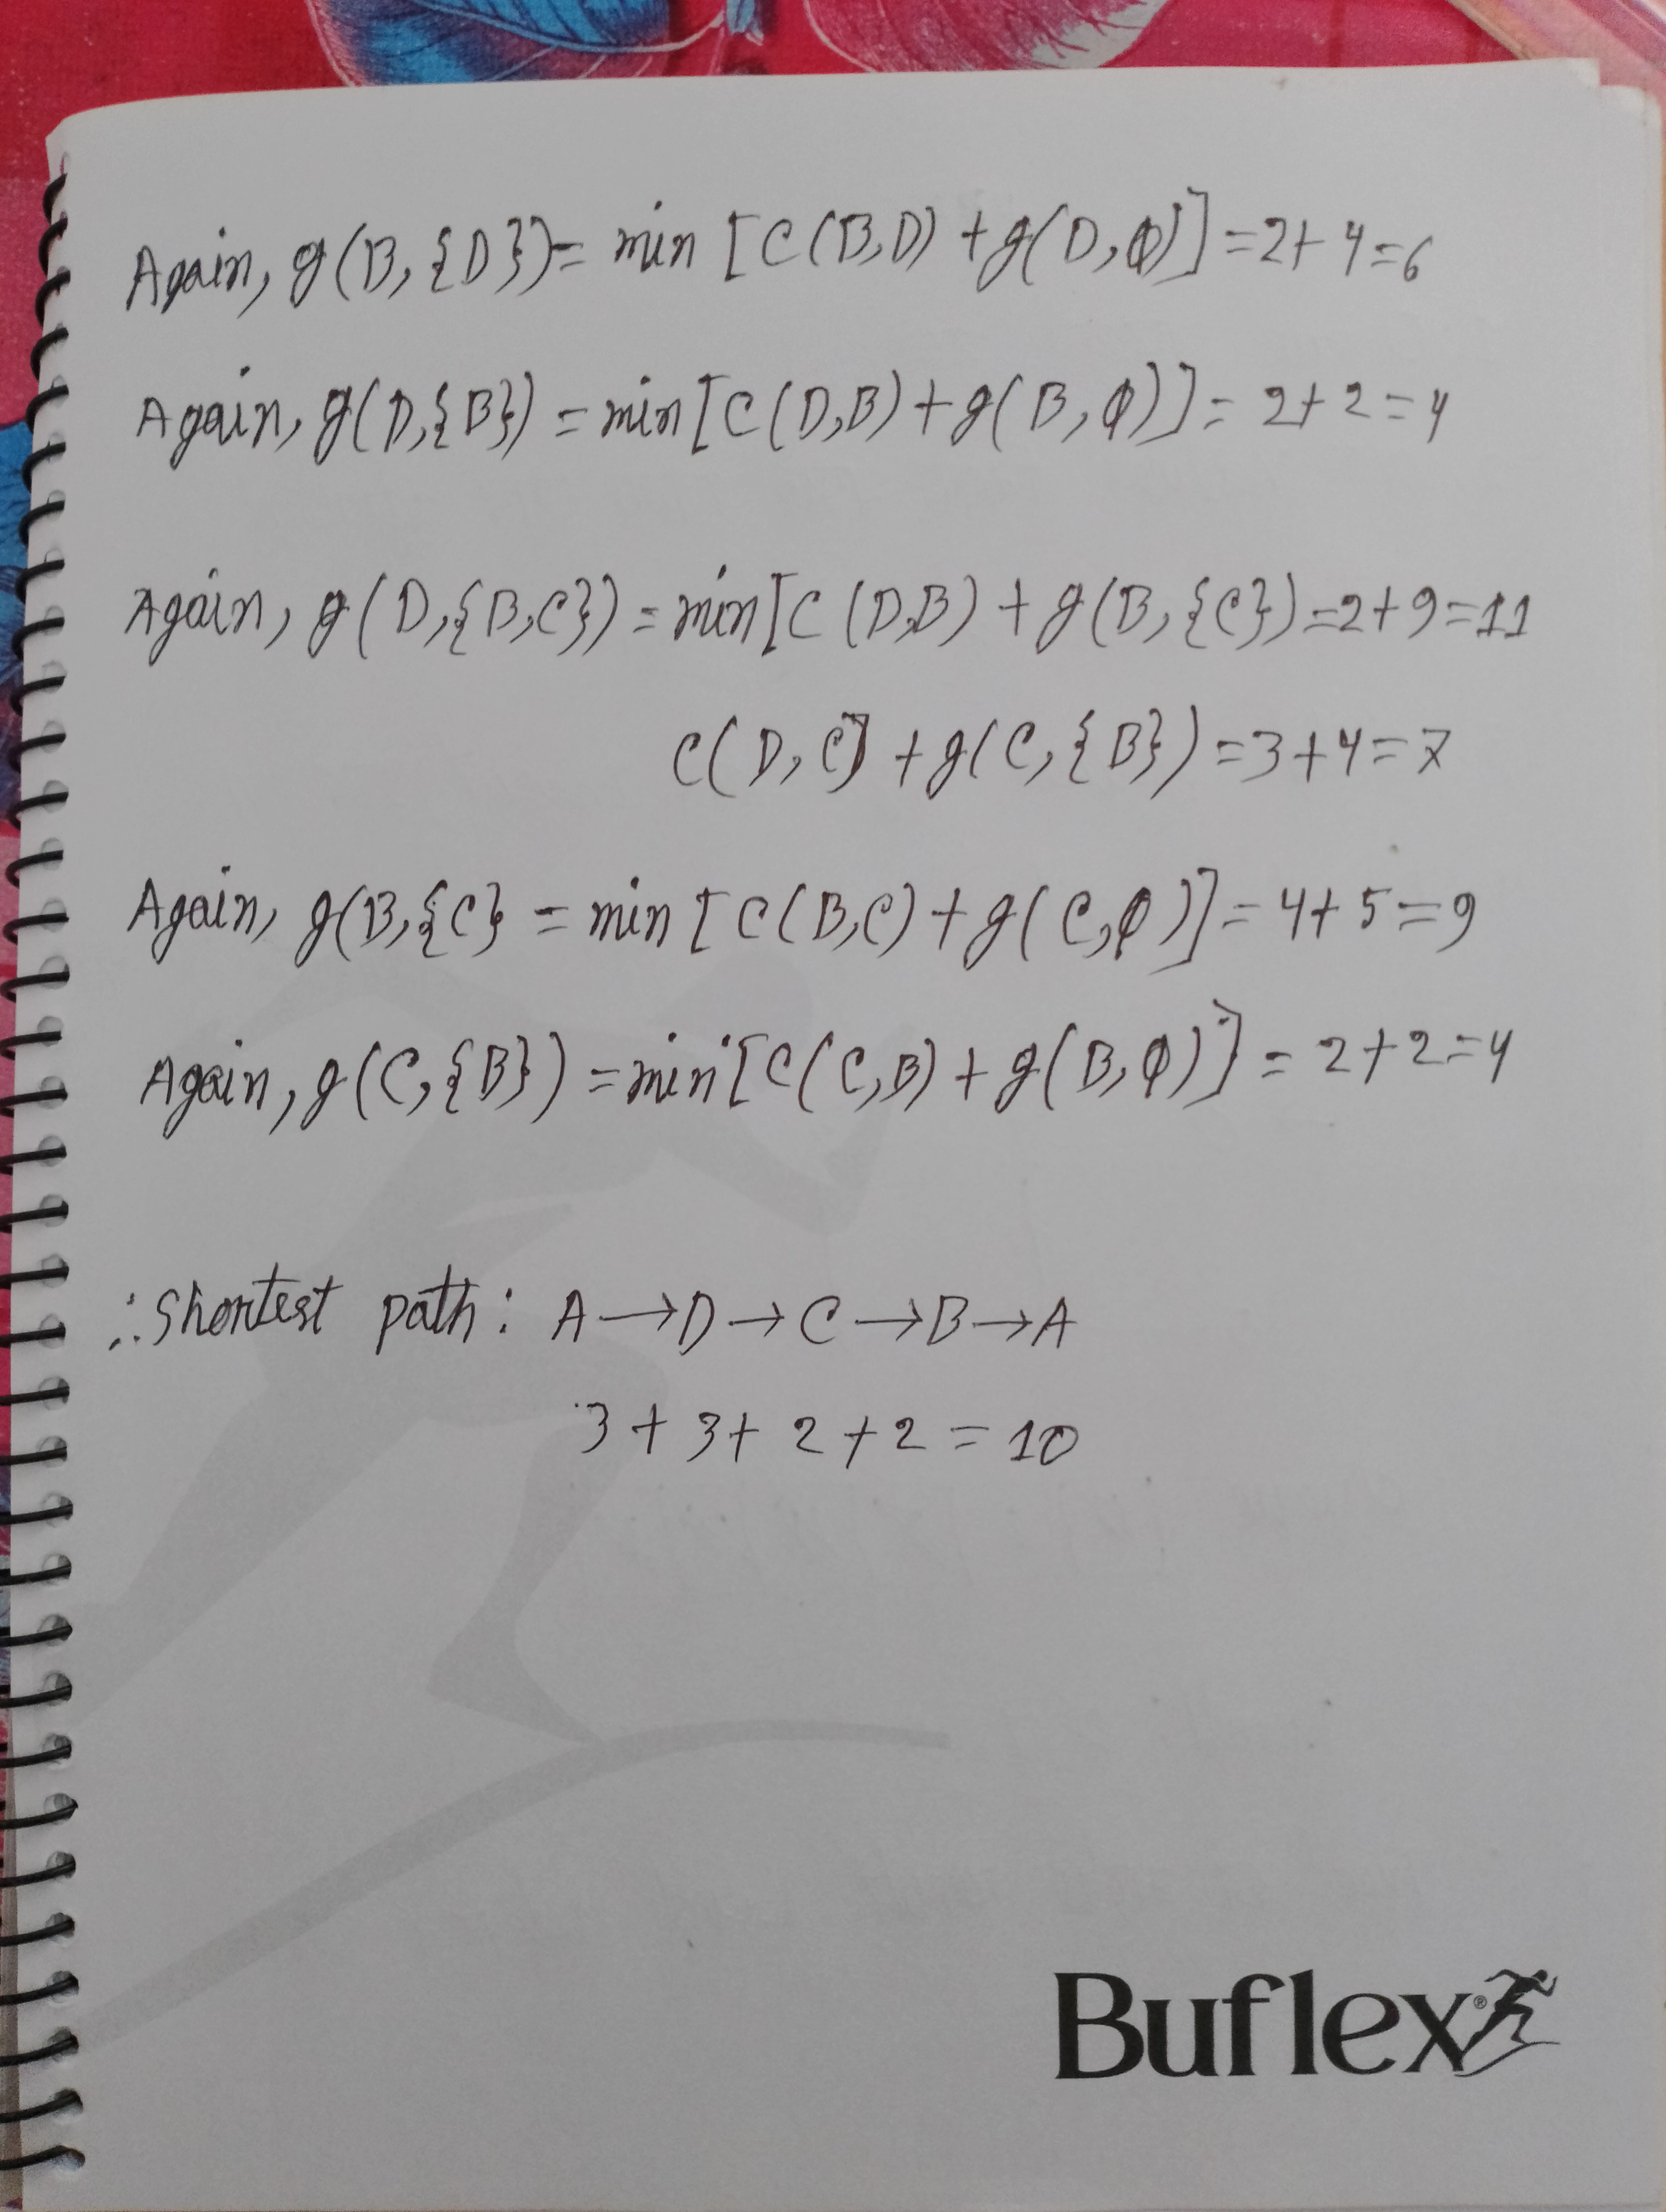 Again, g(B,{D})= min [C(B,D) +g(D,φ)] =2+4=6
Again, g(D,{B}) = min[C(D,B)+g(B,φ)] = 2+2=4
Again, g(D,{B,C}) = min[C (D,B) + g(B,{C})=2+9=11
C(D,C] +g(C,{B}) =3+4=7
Again, g(B,{C} = min [C(B,C)+g(C,φ)]=4+5=9
Again, g(C,{B}) =min[C(C,B)+g(B,φ)] = 2+2=4
∴Shortest path: A→D→C→B→A
3+3+2+2=10
Buflex®